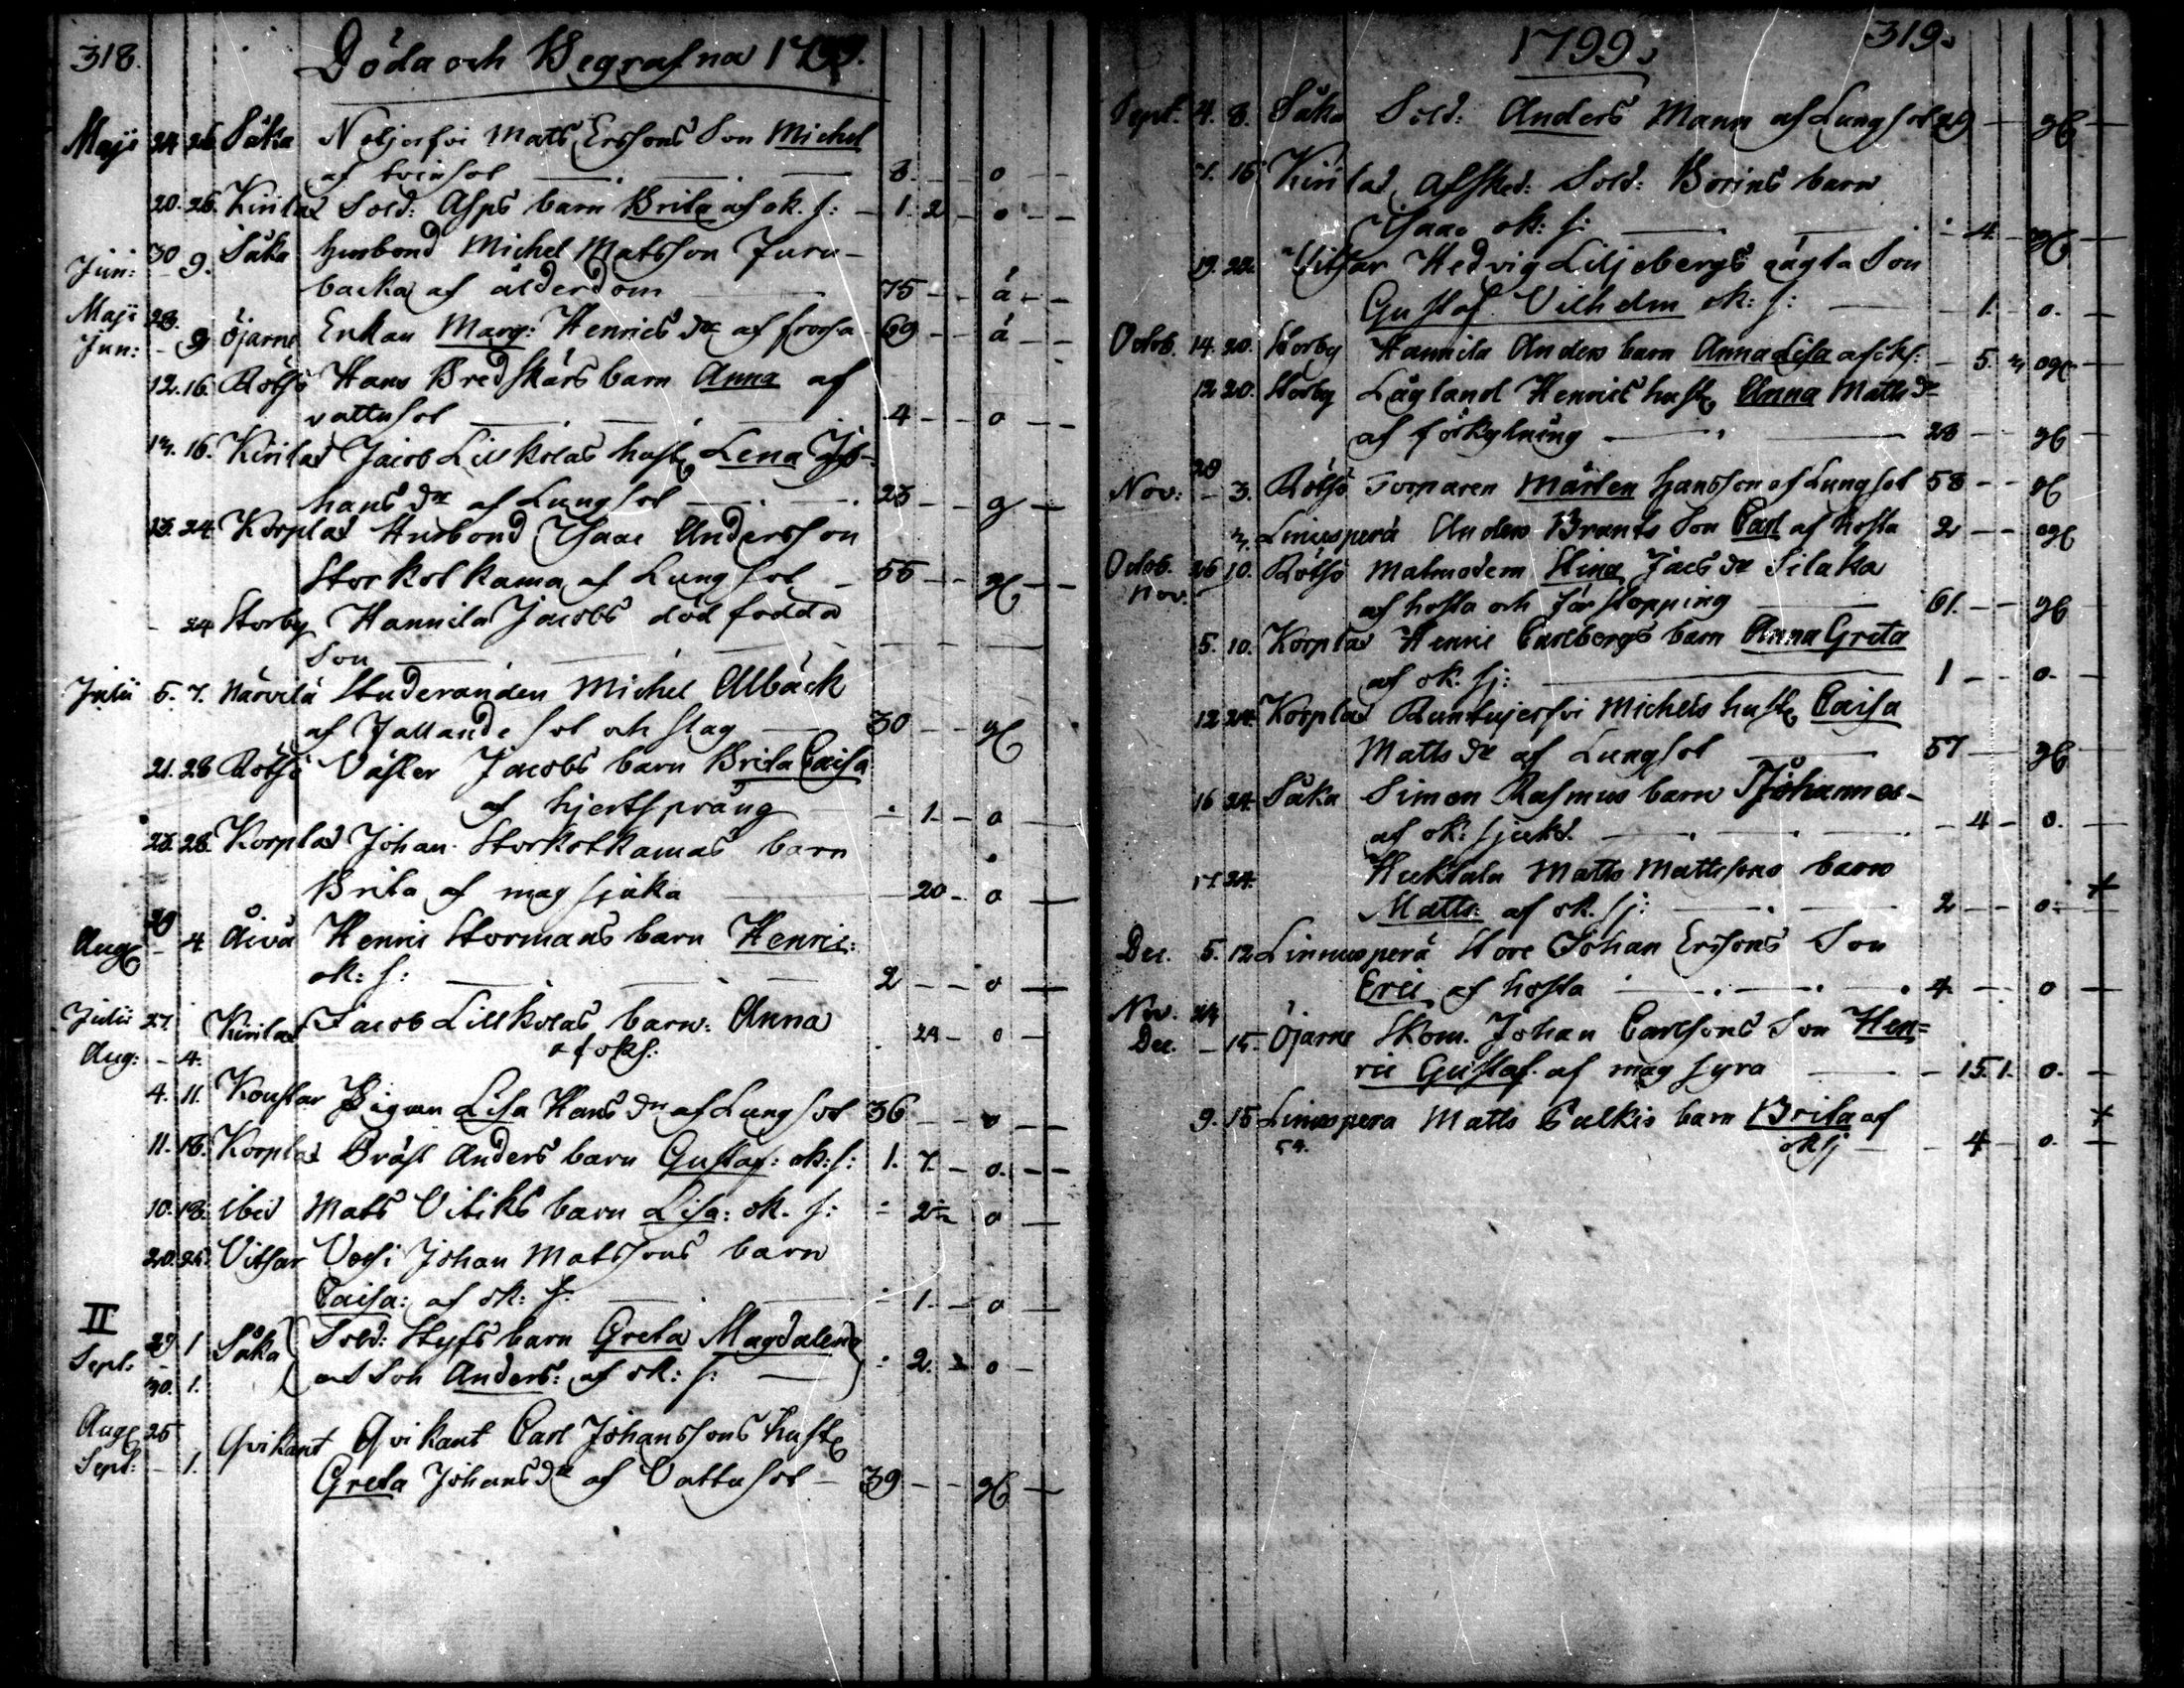 318.
Döda och Begrafna 1799.
Maji 24 26 Såka Neljorfvi Mats Erssons Son Michel
af tvinsot 3. - - o
20. 26. Kirilax Sold: Asps barn Brita af ok. s: - 1. 2 - o - -
Jun: 30 - 9. Såka husbond Michel Matsson Juru-
backa af ålderdom 75 - - å - -
Maji 28.
Jun: - 9 Öjarne Enkan Marg: Henricsdr af frossa 69 - - å - -
12. 16. Rötsö Hans Bredskärs barn Anna af
vattusot 4 - - o - -
16. Kirilax Jacob Lillkolas hust. Lena Jo-
hansdr af Lungsot 23 - - g -
23. 24 Korplax Husbond Isaac Andersson
Storkolkama af Lungsot - 55 - - gl - -
- 24 Storby Hannila Jacobs dödfödda
Son
Julii 5. 7. Närvilä Studeranden Michel Allbäck
af fallandesot och slag 30 - - gl
21. 28 Rötsö Väster Jacobs barn Brita Caisa
af hjertsprång - 1. - o -
23. 28. Korplax Johan Storkolkamas barn
Brita af magsjuka - 20 - o -
29
Aug. - 4 Åivå Henric Stormans barn Henric:
ok: s: 2 - - o -
Julii 27
Kirilax Jacob Lillkolas barn: Anna 24 - o -
Aug: - 4. af ok s:
4. 11. Kouslar Pigan Lisa Hansdr af Lungsot 36 - - o -
11. 18. Korplax Präst Anders barn Gustaf: ok: s: 1. 7. - o. - -
10. 18. ibid Mats Vitiks barn Lisa: ok. s: - 2 1/2 o -
20. 25. Vitsar Vessi Johan Matssons barn
Caisa: af ok: s: - 1. - o -
II
Sept: 29 1 Såka Sold: Styfs barn Greta Magdalena
30. 1. Son Anders: af ok: s: - 2. - o -
Aug. 25
Sept: - 1. Qvikant Qvikant Carl Johanssons hust.
Greta Johansdr af Vattusot - 39 - - gl -
1799. 319.
Sept. 4. 8. Såka Sold: Anders Mann af Lungsot - gl -
7. 15 Kirilax Afsked: Sold: Borins barn
Isaac ok: s: - 4. - gl -
19. 22. Vitsar Hedvig Liljebergs oägta Son
Gustaf Vilhelm ok: s: - 1. - o. -
Octob. 14. 20. Storby Hannila Anders barn Anna Lisa af ok s: - 5. ogl -
12 20. Storby Lågland Henrics hust. Anna Mattsdr
af förkylning 28 - - gl -
28
Nov: - 3. Rötsö Torparen Mårten Hansson af Lungsot 58 - - gl
Linusperä Anders Brants Son Carl af hosta 2 - - ogl
Octob. 26 10. Rötsö Malmodern Stina Jacsdr Silaka
Nov. af hosta och förstopping 61. - - gl
5. 10. Korplax Henric Carlbergs barn Anna Greta
af ok. sj: 1 - - o. -
12 24. Korplax Runtujerfvi Michels hust. Caisa
Mattsdr af Lungsot 57 - gl -
16 24. Såka Simon Rasmus barn Johannes
af ok: sjukd. - 4 - o. -
17. 24. Huktala Matts Mattssons barn
Matts: af ok. sj: 2 - - o. +
Dec. 5. 12 Linnusperä Store Johan Erssons Son
Eric af hosta 4. - o -
Nov. 24
Dec. - 15. Öjarne Skom. Johan Carlsons Son Hen=
ric Gustaf af magsyra - 15. 1. o. -
9. 15 Linusperä Matts Pulkis barn Brita af +
ok sj - 4 - o. -